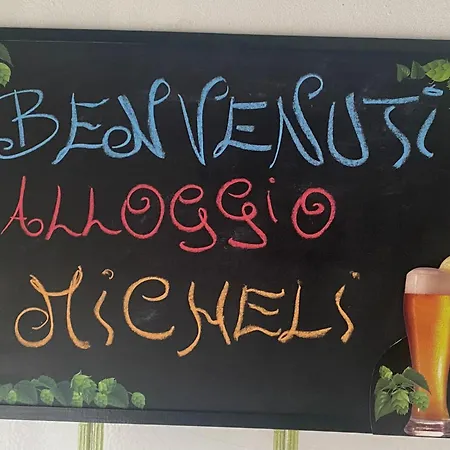 BENVENUTi
ALLOGGiO
MiCHELi